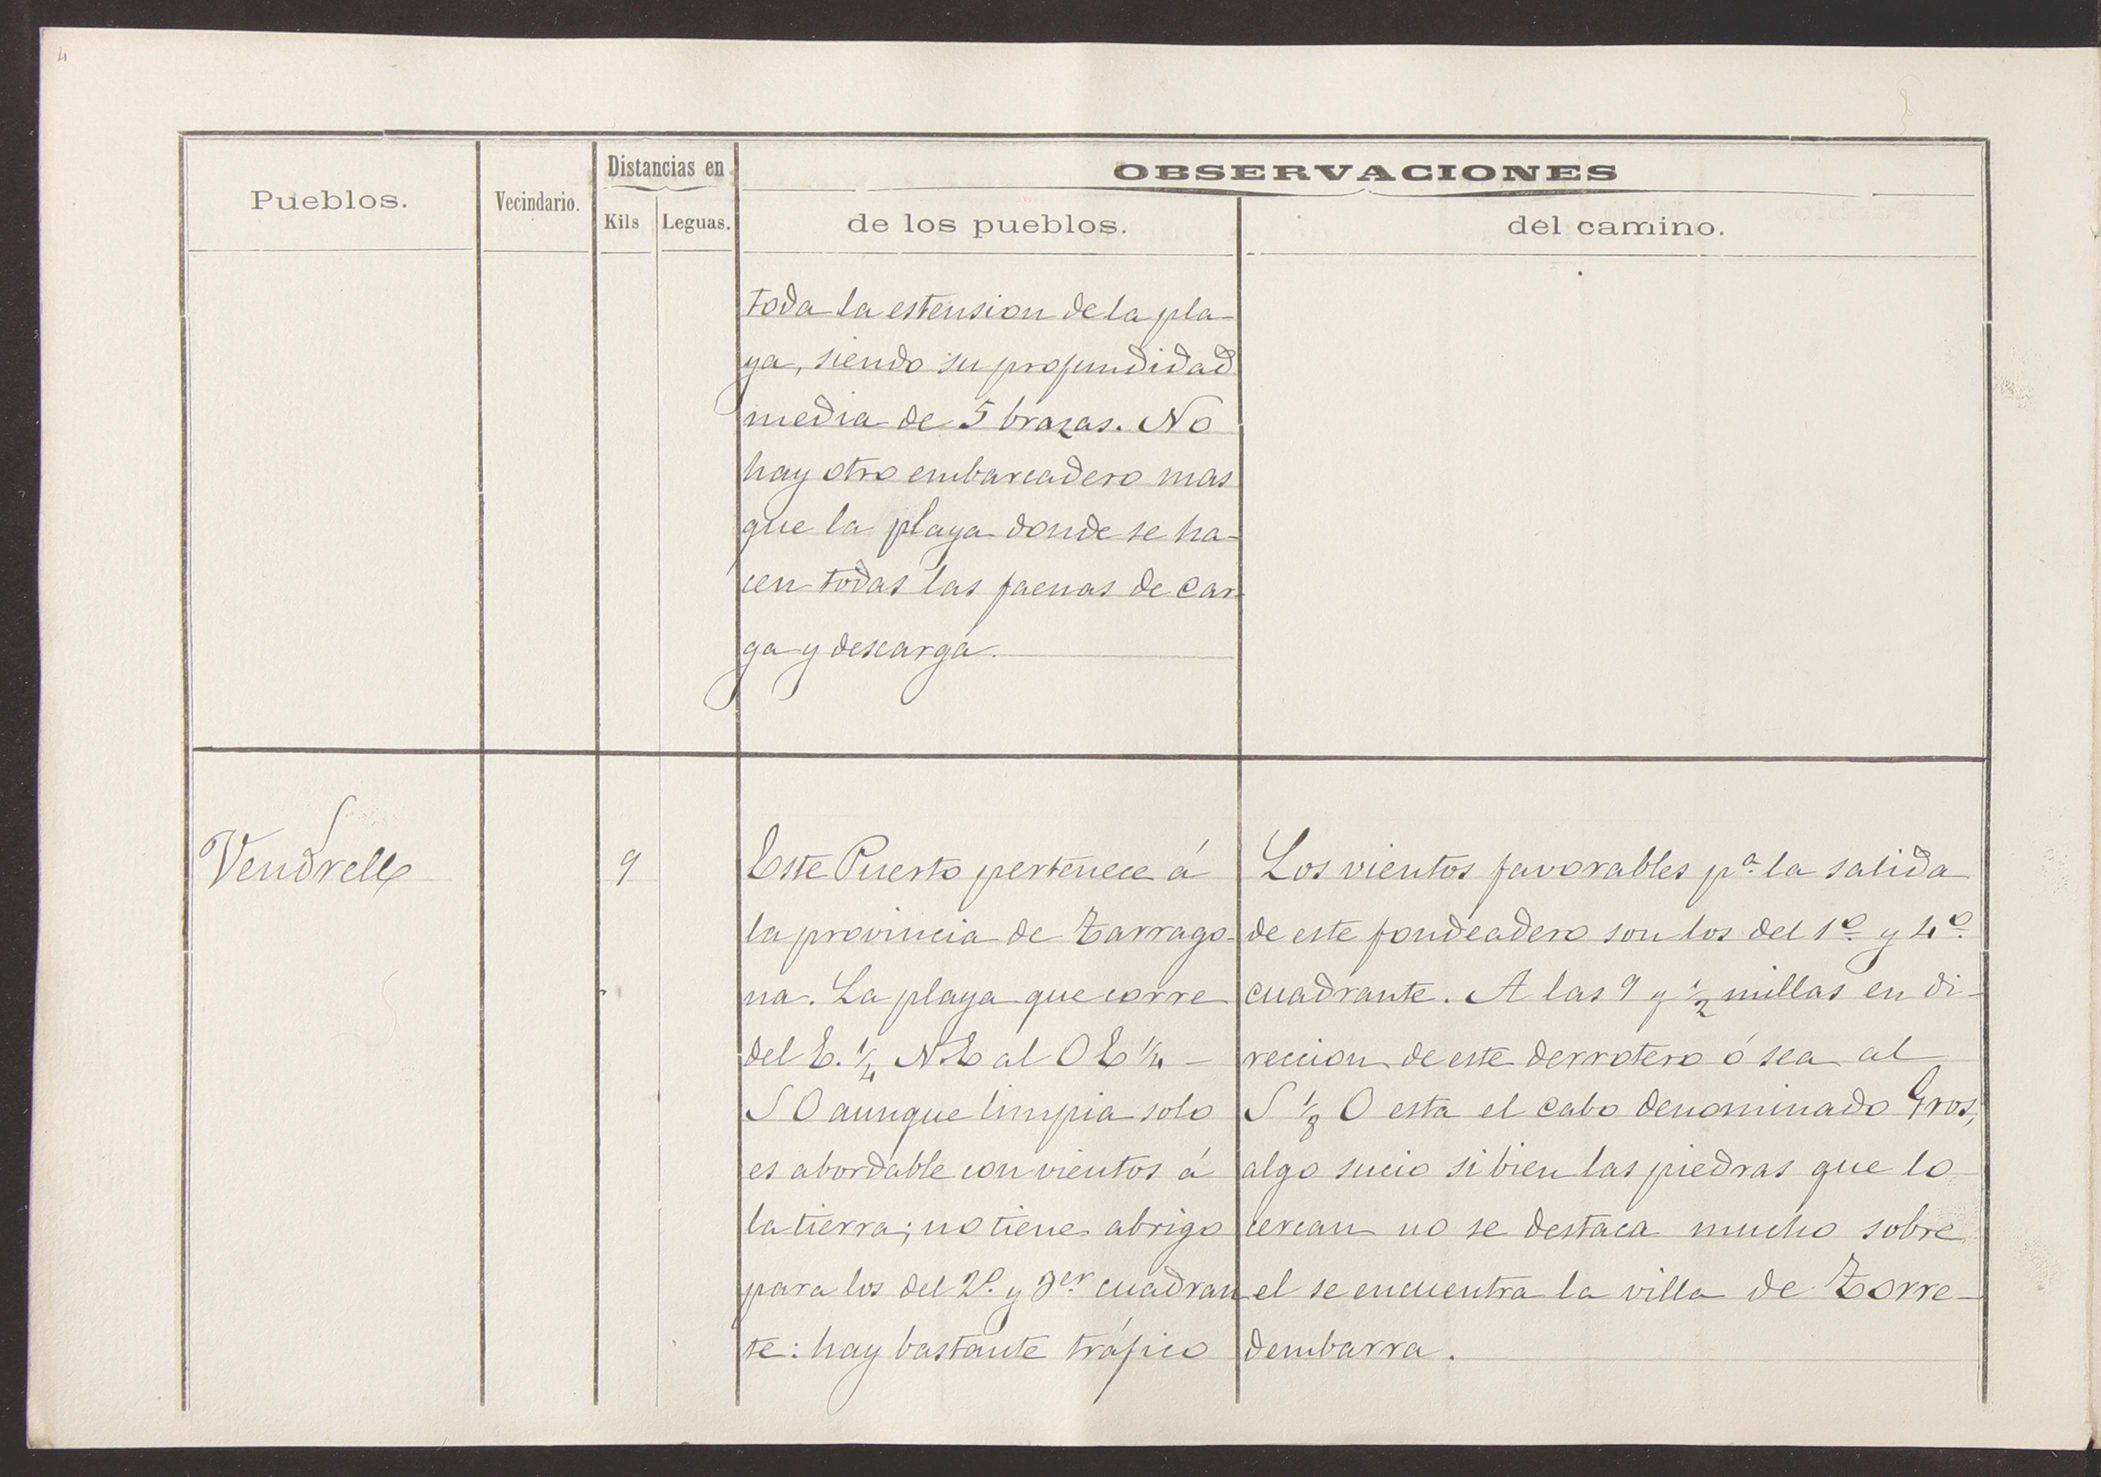 4
Pueblos.
Vecindario.
Distancias en
Kils
Leguas.
OBSERVACIONES
de los pueblos.
del camino.
toda la estension de la pla-
ya, siendo su profundidad
media de 5 brazas. No
hay otro embarcadero mas
que la playa donde se ha-
cen todas las faenas de car-
ga y descarga.
Vendrell
9
Este Puerto pertenece á
la provincia de Tarrago-
na. La playa que corre
del E. 1/4 NE al OE 1/4 -
SO aunque limpia solo
es abordable con vientos á
la tierra; no tiene abrigo
para los del 2º. y 3er cuadran
te: hay bastante tráfico
Los vientos favorables pª. la salida
de este fondeadero son los del 1º. y 4º.
cuadrante. A las 9 y 1/2 millas en di-
reccion de este derrotero ó sea al
S 1/8 O esta el cabo denominado Gros,
algo sucio si bien las piedras que lo
cercan no se destaca mucho sobre
el se encuentra la villa de Torre-
dembarra.